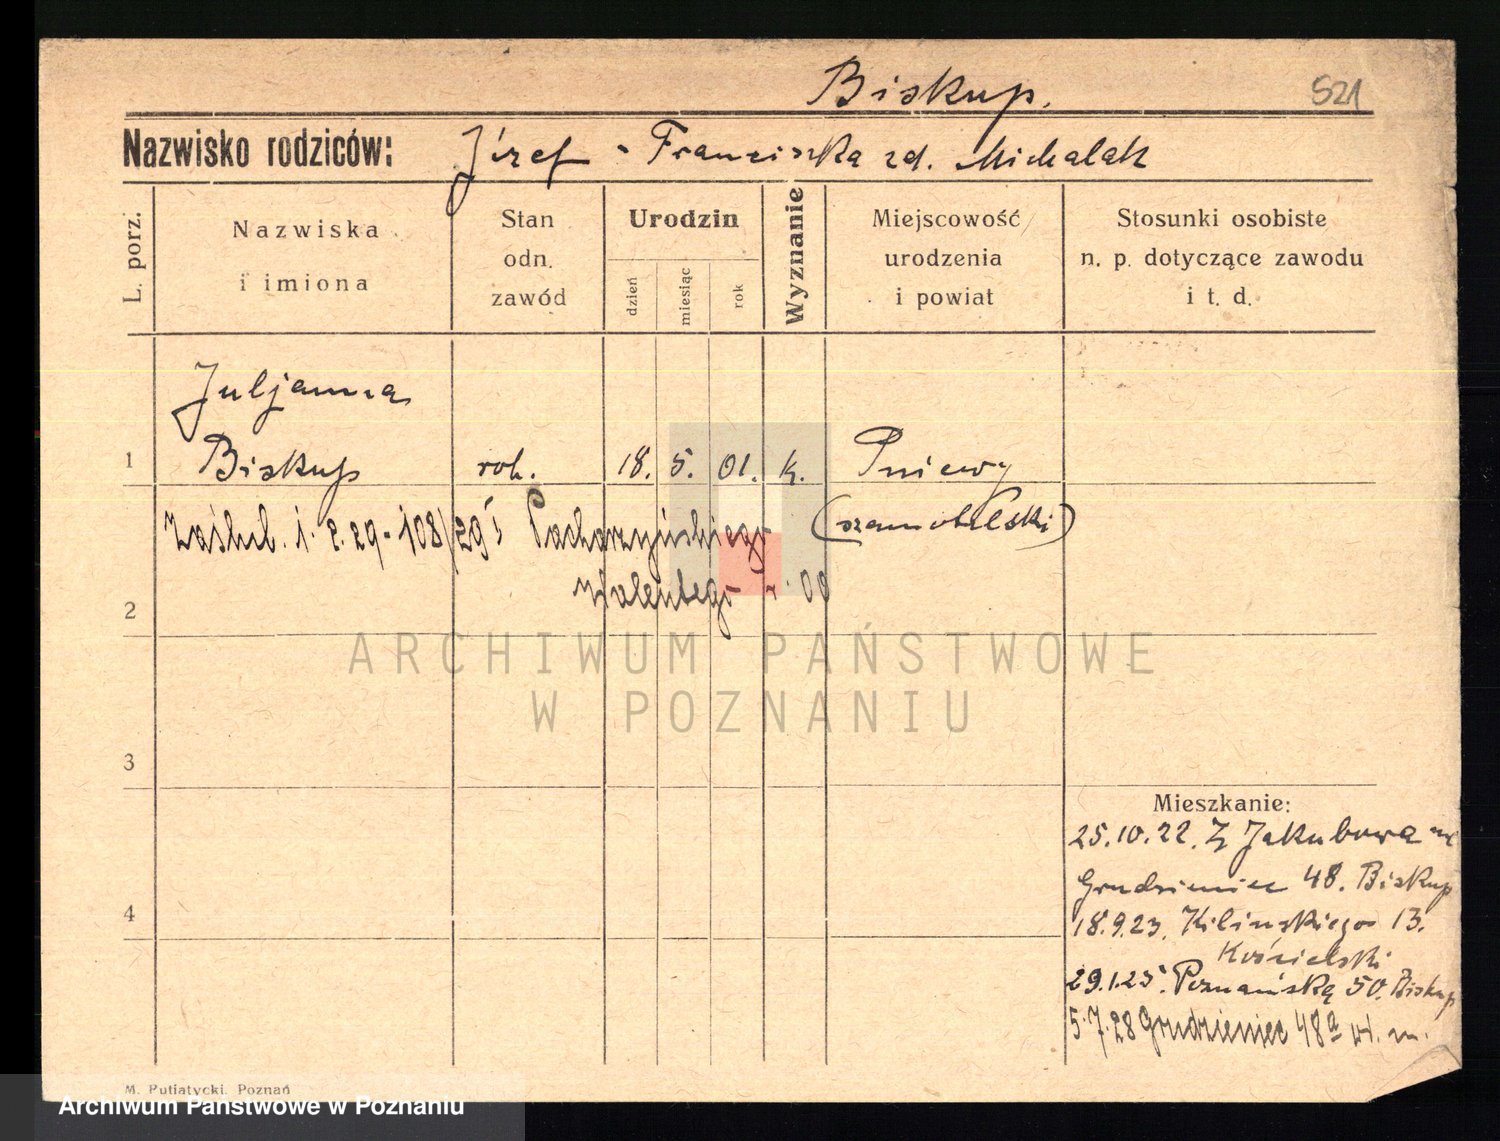 Biskup.
521
Nazwisko rodziców: Józef - Franciszka zd. Michalak
L. porz.
Nazwiska i imiona
Stan odn. zawód
Urodzin
dzień
miesiąc
rok
Wyznanie
Miejscowość urodzenia i powiat
Stosunki osobiste n. p. dotyczące zawodu i t. d.
Juljanna
1 Biskup rob. 18. 5. 01. k. Pniewy
(szamotulski)
Zaślub. 1. 8. 29 - 108/29 Pacharzyńskiego
Walentego 00
2
ARCHIWUM PAŃSTWOWE
W POZNANIU
3
Mieszkanie:
25.10.22. Z Jakubowa
Grudzieniec 48. Biskup
4
18.9.23. Kilińskiego 13.
Kościelski
29.1.25. Poznańska 50. Biskup
5.7.28 Grudzieniec 48a w. m.
M. Putiatycki, Poznań
Archiwum Państwowe w Poznaniu